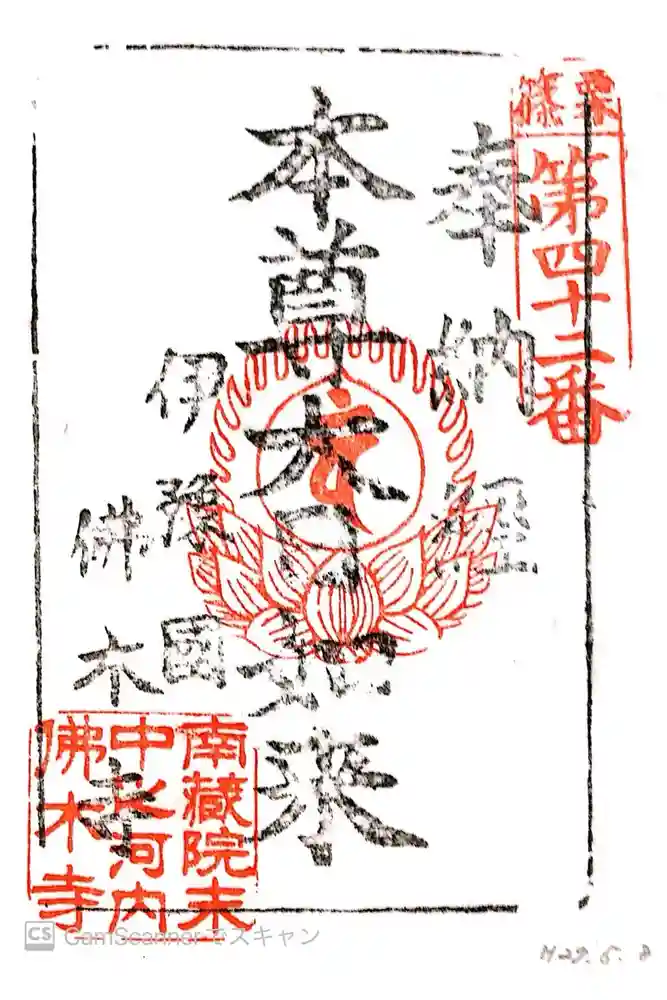 篠栗
第四十二番
奉納經
本尊大日如来
伊豫國
佛木寺
南藏院末
中之河内
佛木寺
CS CamScanner でスキャン
H29.5.8